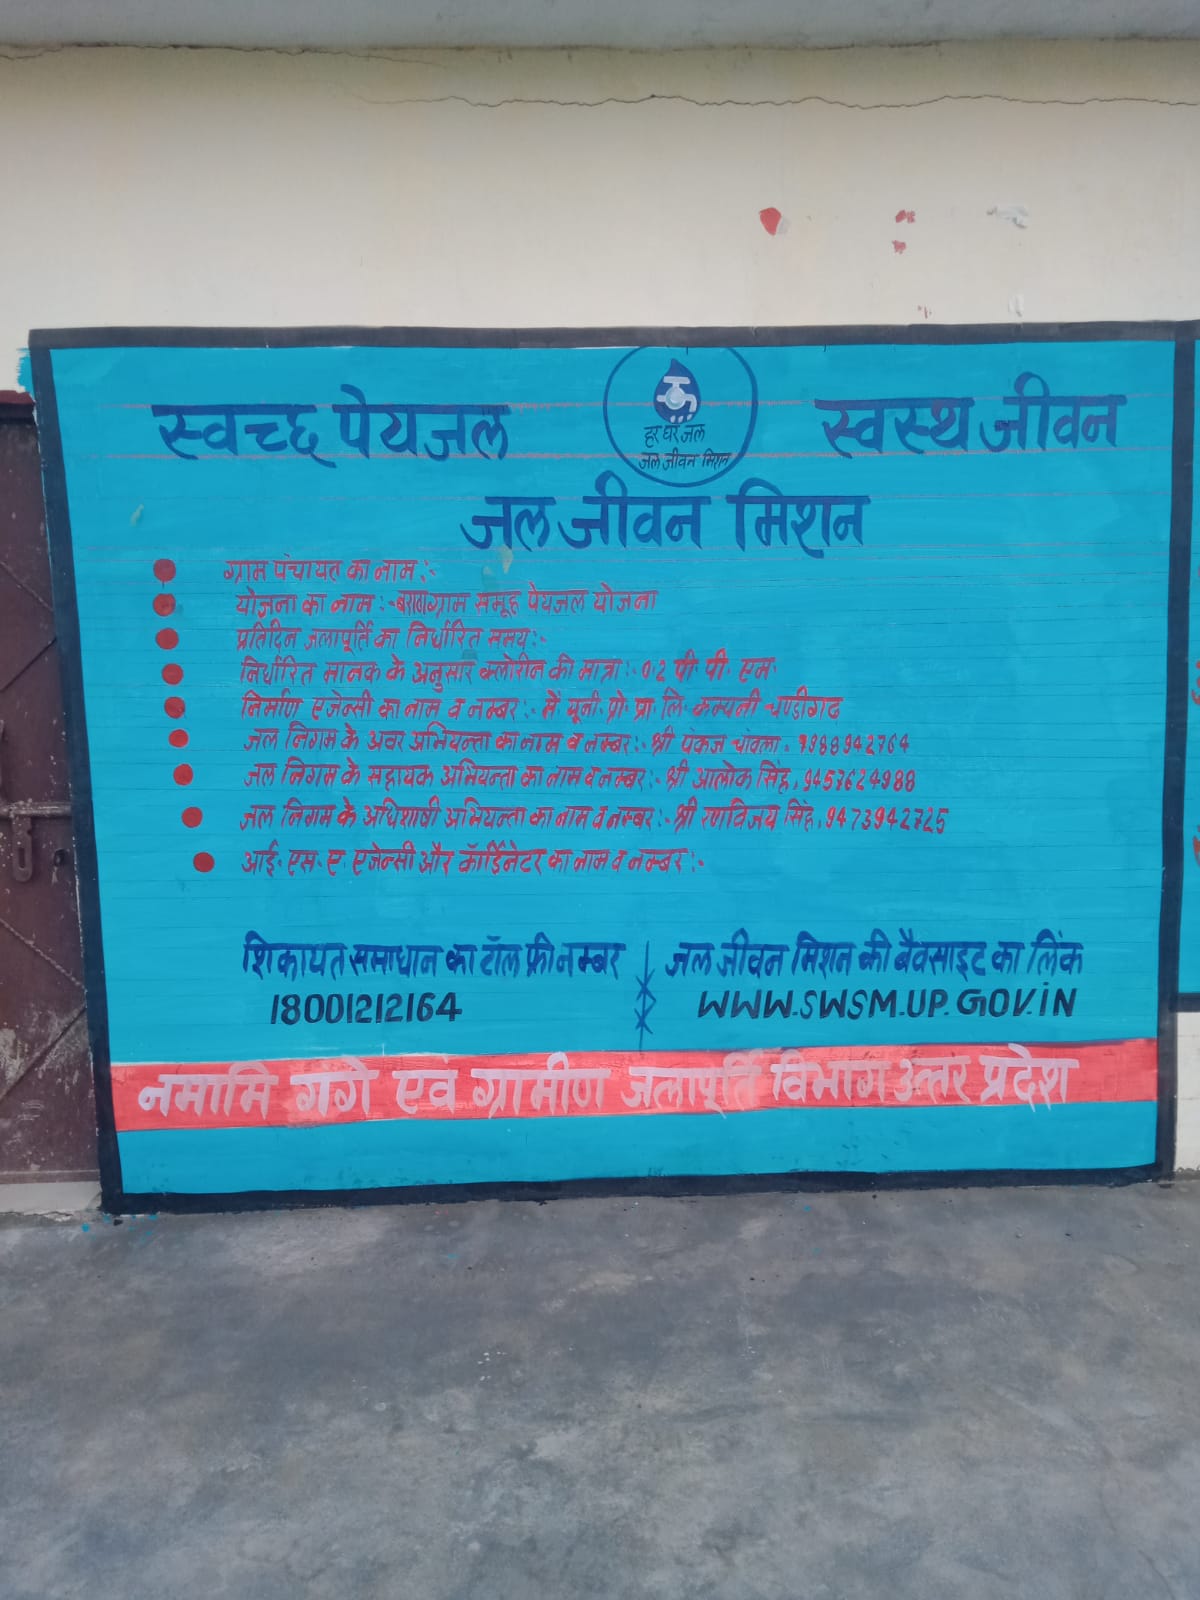 स्वच्छ पेयजल
हर घर जल
जल जीवन मिशन
स्वस्थ जीवन
जल जीवन मिशन
ग्राम पंचायत का नाम :-
योजना का नाम :- ग्राम समूह पेयजल योजना
प्रतिदिन जलापूर्ति का निर्धारित समय :-
निर्धारित मानक के अनुसार क्लोरीन की मात्रा :- 0.2 पी. पी. एम.
निर्माण एजेन्सी का नाम व नम्बर :- मै. यूनी. प्रो. प्रा. लि. कम्पनी चण्डीगढ
जल निगम के अवर अभियन्ता का नाम व नम्बर :- श्री पंकज चावला.
जल निगम के सहायक अभियन्ता का नाम व नम्बर :- श्री आलोक सिंह, 9457624988
जल निगम के अधिशाषी अभियन्ता का नाम व नम्बर :- श्री रणविजय सिंह, 9473942725
आई. एस. ए. एजेन्सी और कॉर्डिनेटर का नाम व नम्बर :-
शिकायत समाधान का टॉल फ्री नम्बर
18001212164
जल जीवन मिशन की बैवसाइट का लिंक
WWW.SWSM.UP.GOV.iN
नमामि गंगे एवं ग्रामीण जलापूर्ति विभाग उत्तर प्रदेश